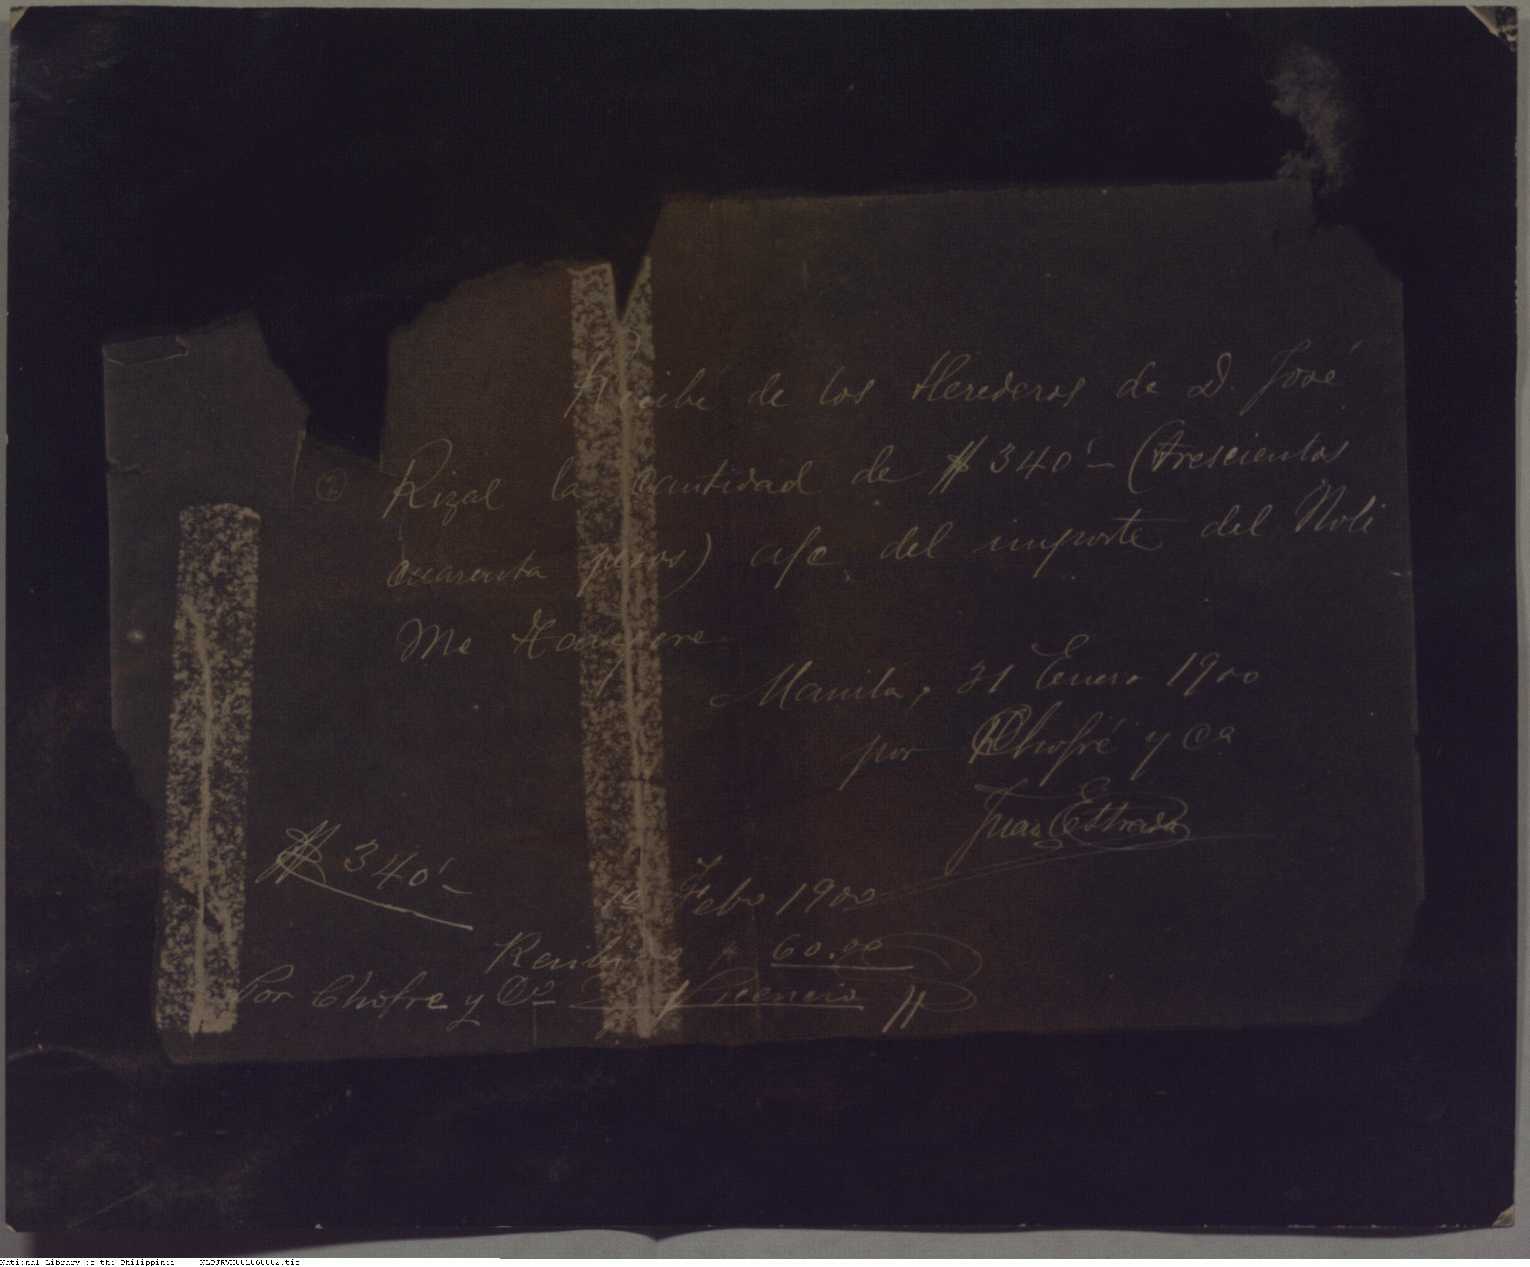 Recibí de los Herederos de D. José
② Rizal la cantidad de $ 340'— (trescientos
cuarenta pesos) a/c del importe del Noli
Me Tangere
Manila, 31 Enero 1900
por Chofré y Cª
Juan Estrada
$ 340'—
10 Febo 1900
Recibimos $ 60.00
Por Chofre y Cº Vicencio
National Library of the Philippines